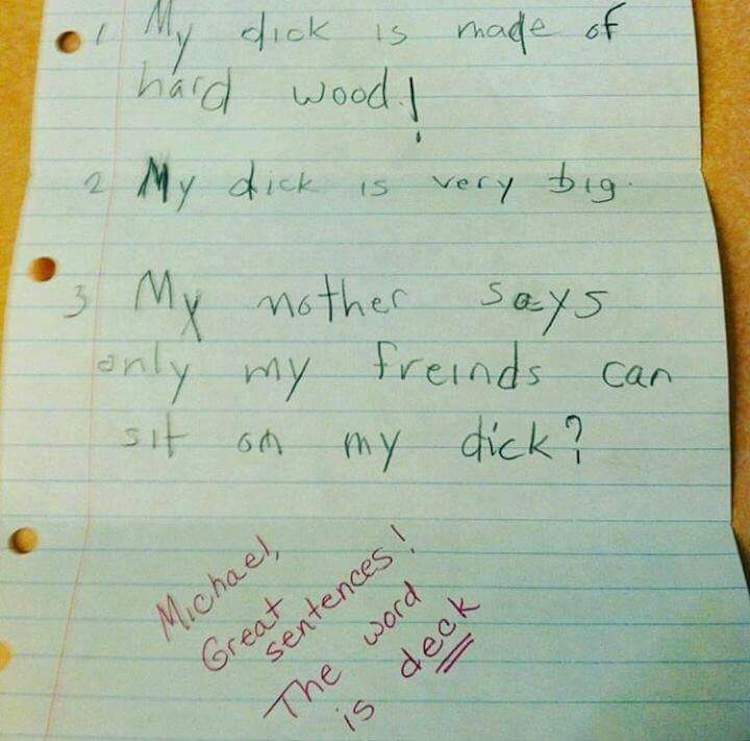 1 My dick is made of
hard wood.!
2 My dick is very big.
3 My mother says
only my freinds can
sit on my dick?
Michael,
Great
sentences!
The word
is deck